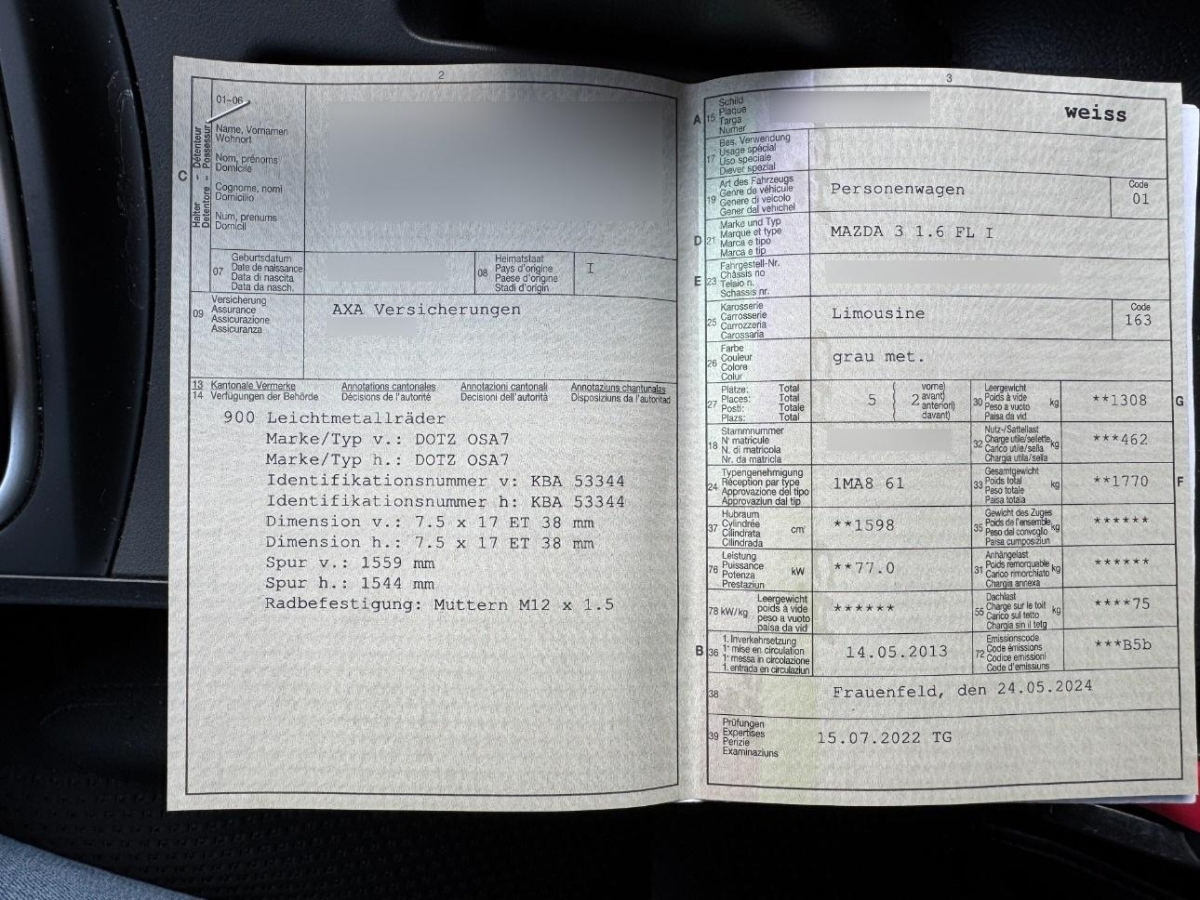 2
C
Halter - Détenteur
Detentore - Possessur
01-06
Name, Vornamen
Wohnort
Nom, prénoms
Domicile
Cognome, nomi
Domicilio
Num, prenums
Domicil
07
Geburtsdatum
Date de naissance
Data di nascita
Data da nasch.
08
Heimatstaat
Pays d'origine
Paese d'origine
Stadi d'origin
I
09
Versicherung
Assurance
Assicurazione
Assicuranza
AXA Versicherungen
13 Kantonale Vermerke Annotations cantonales Annotazioni cantonali Annotaziuns chantunalas
14 Verfügungen der Behörde Décisions de l'autorité Decisioni dell'autorità Disposiziuns da l'autoritad
900 Leichtmetallräder
Marke/Typ v.: DOTZ OSA7
Marke/Typ h.: DOTZ OSA7
Identifikationsnummer v: KBA 53344
Identifikationsnummer h: KBA 53344
Dimension v.: 7.5 x 17 ET 38 mm
Dimension h.: 7.5 x 17 ET 38 mm
Spur v.: 1559 mm
Spur h.: 1544 mm
Radbefestigung: Muttern M12 x 1.5
3
A 15
Schild
Plaque
Targa
Numer
weiss
17
Bes. Verwendung
Usage spécial
Uso speciale
Diever spezial
19
Art des Fahrzeugs
Genre de véhicule
Genere di veicolo
Gener dal vehichel
Personenwagen
Code
01
D 21
Marke und Typ
Marque et type
Marca e tipo
Marca e tip
MAZDA 3 1.6 FL I
E 23
Fahrgestell-Nr.
Châssis no
Telaio n.
Schassis nr.
25
Karosserie
Carrosserie
Carrozzeria
Carossaria
Limousine
Code
163
26
Farbe
Couleur
Colore
Colur
grau met.
27
Plätze: Total
Places: Total
Posti: Totale
Plazs: Total
5
2
vorne)
avant)
anteriori)
davant)
30
Leergewicht
Poids à vide
Peso a vuoto
Paisa da vid
kg
**1308
G
18
Stammnummer
N° matricule
N. di matricola
Nr. da matricla
32
Nutz-/Sattellast
Charge utile/sellette
Carico utile/sella
Chargia utila/sella
kg
***462
24
Typengenehmigung
Réception par type
Approvazione del tipo
Approvaziun dal tip
1MA8 61
33
Gesamtgewicht
Poids total
Peso totale
Paisa totala
kg
**1770
F
37
Hubraum
Cylindrée
Cilindrata
Cilindrada
cm³
**1598
35
Gewicht des Zuges
Poids de l'ensemble
Peso del convoglio
Paisa cumposiziun
kg
******
76
Leistung
Puissance
Potenza
Prestaziun
kW
**77.0
31
Anhängelast
Poids remorquable
Carico rimorchiato
Chargia annexa
kg
******
78 kW/kg
Leergewicht
poids à vide
peso a vuoto
paisa da vid
******
55
Dachlast
Charge sur le toit
Carico sul tetto
Chargia sin il tetg
kg
****75
B 36
1. Inverkehrsetzung
1re mise en circulation
1a messa in circolazione
1. entrada en circulaziun
14.05.2013
72
Emissionscode
Code émissions
Codice emissioni
Code d'emissiuns
***B5b
38
Frauenfeld, den 24.05.2024
39
Prüfungen
Expertises
Perizie
Examinaziuns
15.07.2022 TG